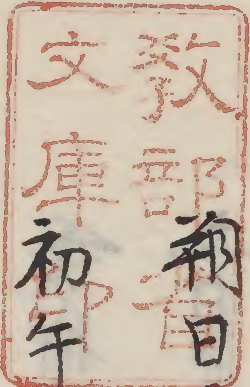 教部省
文庫印
朔日
初午